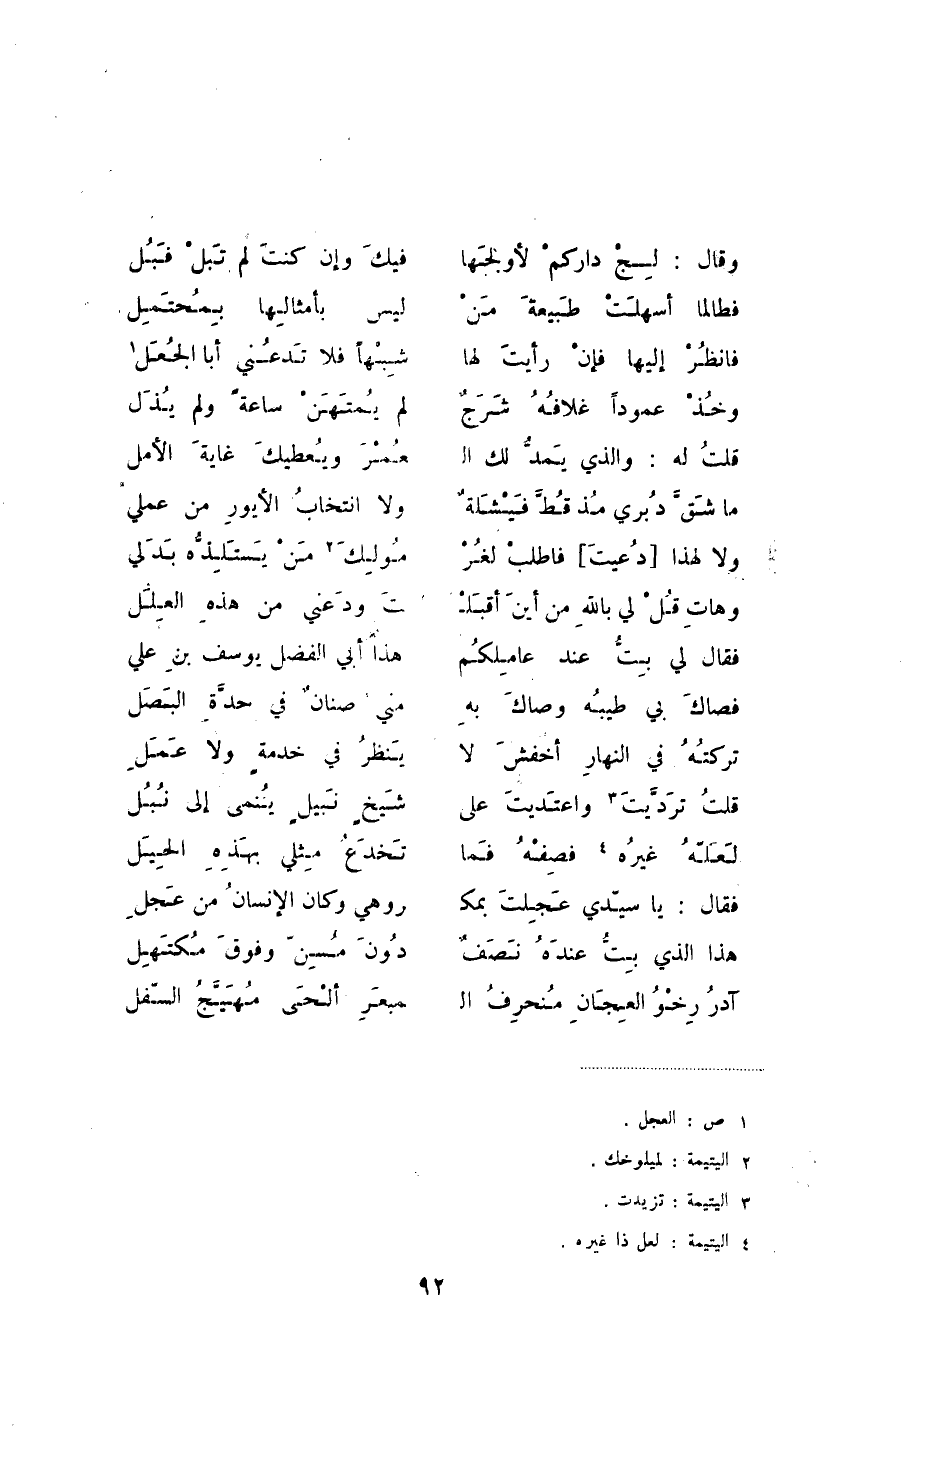 وقال : لِجْ داركمْ لأولجَها فيكَ وإن كنتَ لم تَبَلْ فَبُل
فطالما أسهلَتْ طَبيعةَ مَنْ ليس بأمثالِها بِمُحتَمِلِ
فانظُرْ إليها فإنْ رأيتَ لها شِبْهاً فلا تَدعُني أبا الجُعَل١
وخُذْ عموداً غلافُهُ شَرَجٌ لم يُمتَهَنْ ساعةً ولم يُذَل
قلتُ له : والذي يَمدُّ لك ال عُمْرَ ويُعطيكَ غايةَ الأمل
ما شَقَّ دُبري مُذ قَطُّ فَيْشَلَةٌ ولا انتخابُ الأيورِ من عملي
ولا لهذا [دُعيتَ] فاطلبْ لغُرْ مُولِك٢ مَنْ يَستَلِذُّه بَدَلي
وهاتِ قُلْ لي باللهِ من أينَ أقبَلْ تَ ودَعني من هذهِ العِلَل
فقال لي بِتُّ عند عامِلِكُم هذا أبي الفضل يوسف بنِ علي
فصاكَ بي طيبُه وصاكَ به مني صنانٌ في حدَّةِ البَصَل
تركتُهُ في النهارِ أخفشَ لا يَنظرُ في خدمةٍ ولا عَمَلِ
قلتُ تَرَدَّيتَ٣ واعتَديتَ على شَيخٍ نَبيلٍ يُنْمى إلى نُبُل
لَعَلّهُ غيرُه٤ فصِفْهُ فَما تَخدَعُ مِثلي بهَذِهِ الحِيَل
فقال : يا سيّدي عَجِلتَ بمك روهي وكان الإنسانُ من عَجَلِ
هذا الذي بِتُّ عندَهُ نَصَفٌ دُونَ مُسِنّ وفوقَ مُكتَهِل
آدرُ رِخْوُ العِجَانِ مُنحرِفُ ال مبعَرِ ألْحَى مُهَيَّجُ السّفل
١ ص : العجل .
٢ اليتيمة : لميلوخك .
٣ اليتيمة : تزيدت .
٤ اليتيمة : لعل ذا غيره .
٩٢